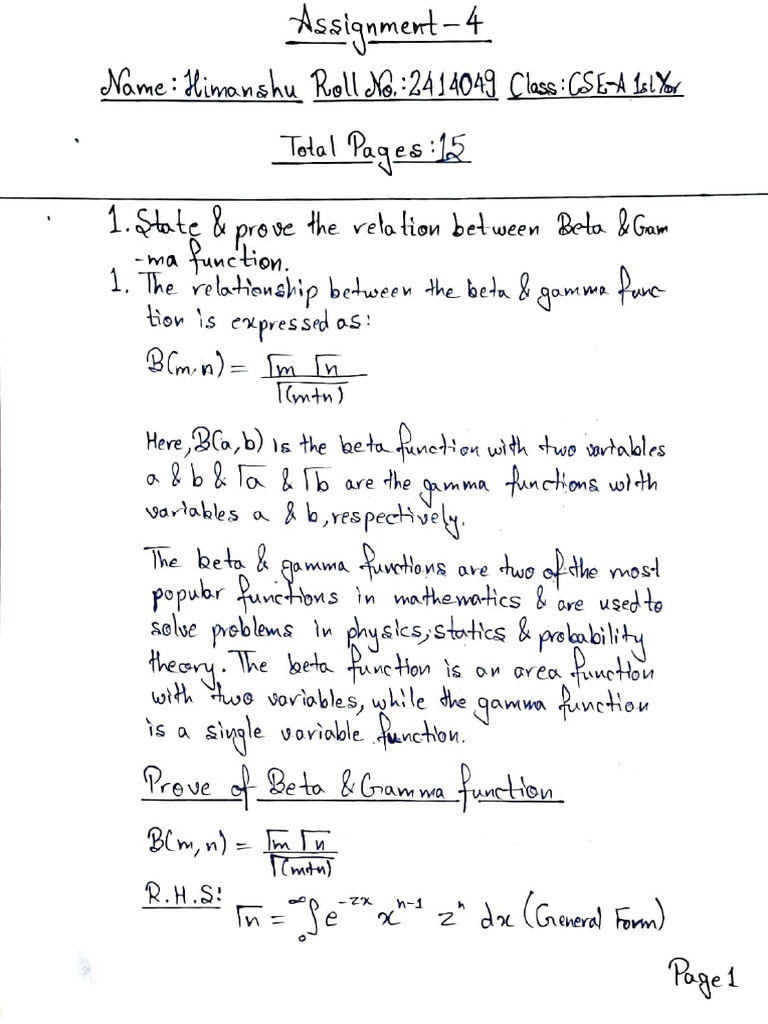 Assignment-4
Name: Himanshu Roll No.: 2414049 Class: CSE-A 1st Year
Total Pages: 15
1. State & prove the relation between Beta & Gam
-ma function.
1. The relationship between the beta & gamma func
tion is expressed as:
B(m,n) = Γm Γn / Γ(m+n)
Here, B(a,b) is the beta function with two variables
a & b & Γa & Γb are the gamma functions with
variables a & b, respectively.
The beta & gamma functions are two of the most
popular functions in mathematics & are used to
solve problems in physics, statics & probability
theory. The beta function is an area function
with two variables, while the gamma function
is a single variable function.
Prove of Beta & Gamma function
B(m,n) = Γm Γn / Γ(m+n)
R.H.S:
Γn = ∫₀^∞ e^-zx x^n-1 z^n dx (General Form)
Page 1